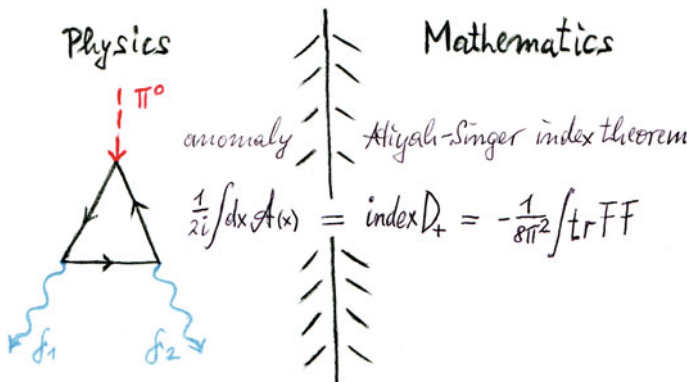 Physics
Mathematics
π⁰
anomaly
Atiyah-Singer index theorem
1/2i ∫dx A(x) = index D₊ = - 1/8π² ∫tr FF
γ₁
γ₂